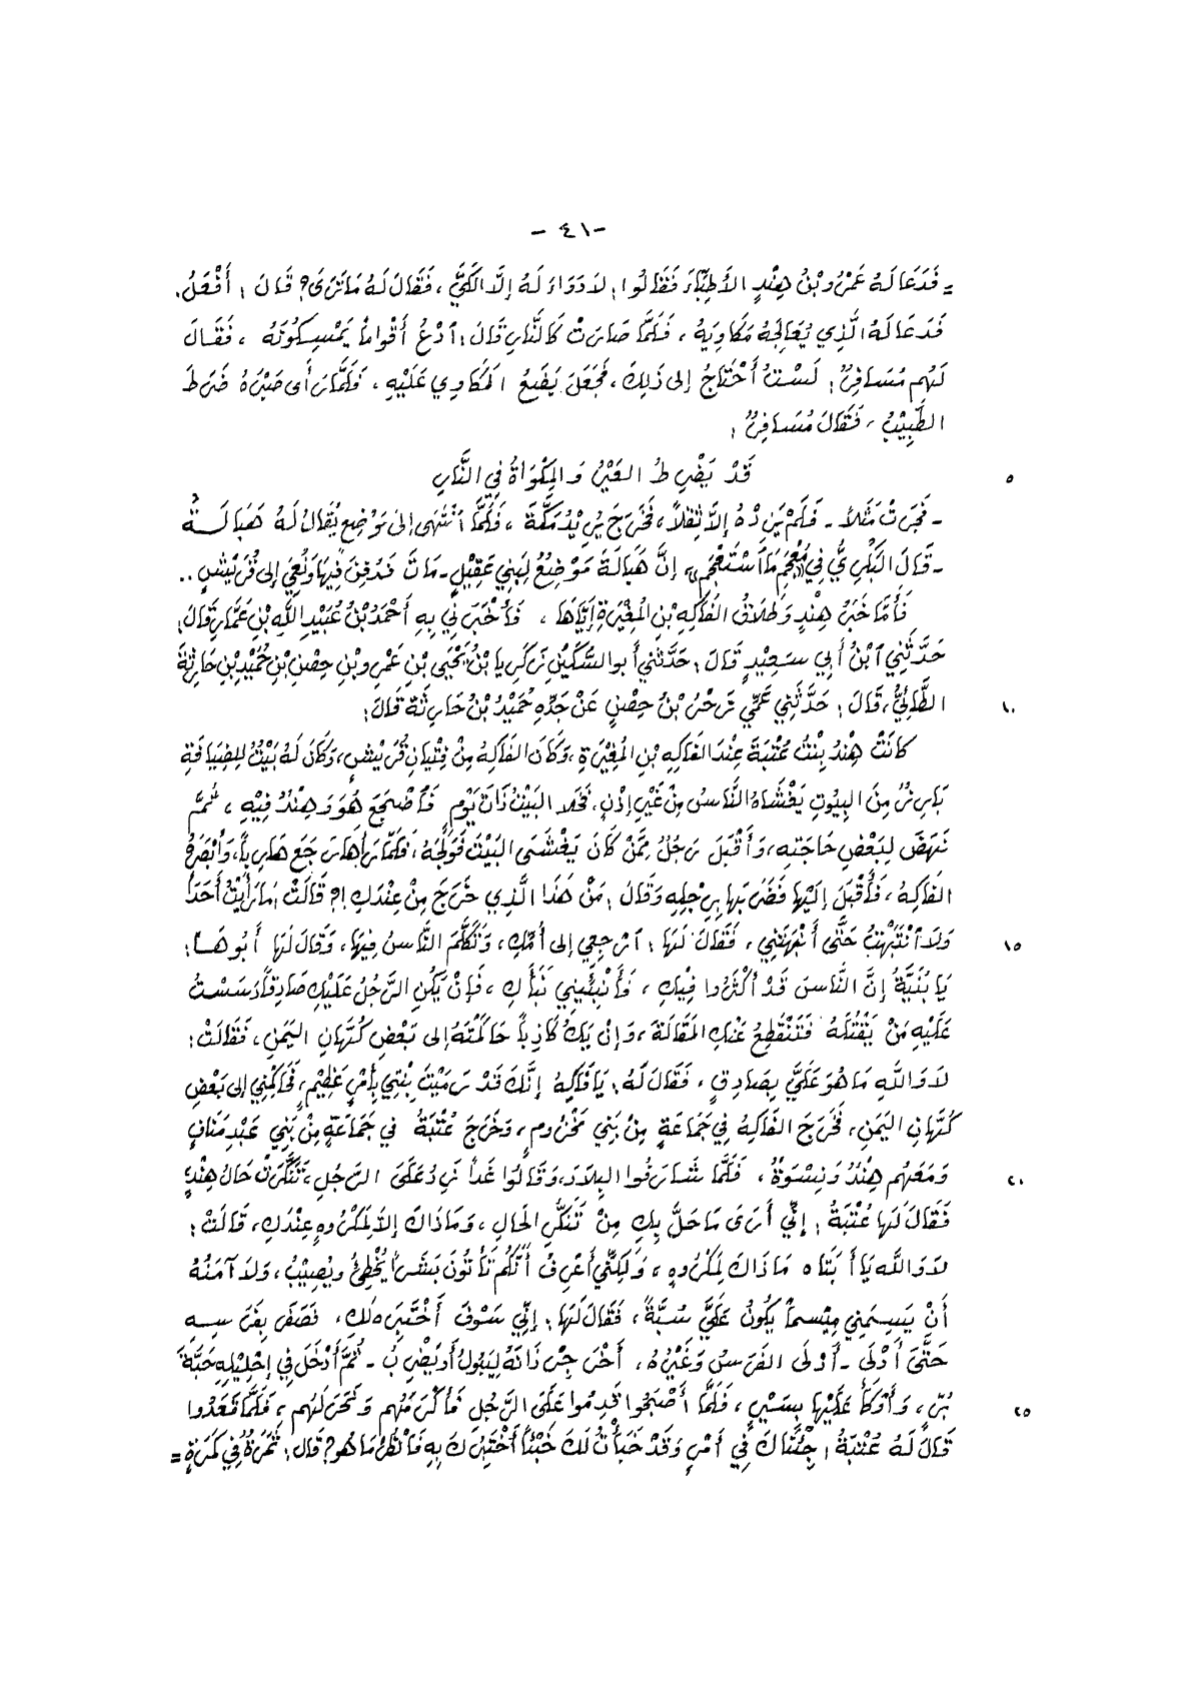 - ٤١ -
= فَدَعَا لَهُ عَمْرُو بْنُ هِنْدٍ الأَطِبَّاءَ فَقَالُوا: لاَ دَوَاءَ لَهُ إِلاَّ الكَيَّ، فَقَالَ لَهُ مَا تَرَى؟ قَالَ: أَفْعَلُ.
فَدَعَا لَهُ الَّذِي يُعَالِجُهُ مَكَاوِيَهُ، فَلَمَّا صَارَتْ كَالنَّارِ قَالَ: ٱدْعُ أَقْوَاماً يَمْسِكُونَهُ، فَقَالَ
لَهُم مُسَافِرٌ: لَسْتُ أَحْتَاجُ إِلى ذَلِكَ، فَجَعَلَ يَضَعُ المَكَاوِي عَلَيْهِ، فَلَمَّا رَأَى صَبْرَهُ ضَرَطَ
الطَّبِيْبُ، فَقَالَ مُسَافِرٌ:
٥ قَدْ يَضْرِطُ العَيْرُ وَالمِكْوَاةُ فِي النَّارِ
- فَجَرَتْ مَثَلاً - فَلَمْ يَزِدْهُ إِلاَّ ثِقَلاً، فَخَرَجَ يُرِيْدُ مَكَّةَ، فَلَمَّا ٱنْتَهَى إِلى مَوْضِعٍ يُقَالُ لَهُ هُبَالَةُ
- قَالَ البَكْرِيُّ فِي «مُعْجَمِ مَا ٱسْتَعْجَمَ» إِنَّ هَبَالَةَ مَوْضِعٌ لِبَنِي عَقِيْلٍ - مَاتَ فَدُفِنَ فِيْهَا وَنُعِيَ إِلى قُرَيْشٍ ..
فَأَمَّا خَبَرُ هِنْدٍ وَطَلاَقُ الفَاكِهِ بْنِ المُغِيْرَةِ إِيَّاهَا، فَأَخْبَرَنِي بِهِ أَحْمَدُ بْنُ عُبَيْدِ اللَّهِ بْنِ عَمَّارٍ قَالَ:
حَدَّثَنِي ٱبْنُ أَبِي سَعِيْدٍ قَالَ: حَدَّثَنِي أَبو السُّكَيْنِ زَكَرِيا بْنُ يَحْيَى بْنِ عَمْرِو بْنِ حِصْنِ بْنِ حُمَيْدِ بْنِ حَارِثَةَ
١٠ الطَّائِيُّ، قَالَ: حَدَّثَنِي عَمِّي زَحْرُ بْنُ حِصْنٍ عَنْ جَدِّهِ حُمَيْدِ بْنِ حَارِثَةَ قَالَ:
كَانَتْ هِنْدُ بِنْتُ عُتْبَةَ عِنْدَ الفَاكِهِ بْنِ المُغِيْرَةِ، وَكَانَ الفَاكِهُ مِنْ فِتْيَانِ قُرَيْشٍ، وَكَانَ لَهُ بَيْتٌ لِلضِيَافَةِ
بَارِزٌ مِنَ البِيُوتِ يَغْشَاهُ النَّاسُ مِنْ غَيْرِ إِذْنٍ، فَخَلا البَيْتُ ذَاتَ يَوْمٍ فَأضْطَجَعَ هُوَ وَهِنْدُ فِيْهِ، ثُمَّ
نَهَضَ لِبَعْضِ حَاجَتِهِ، وَأَقْبَلَ رَجُلٌ مِمَّنْ كَانَ يَغْشَى البَيْتَ فَوَلَجَهُ، فَلَمَّا رَآهَا رَجَعَ هَارِباً، وَأَبْصَرَهُ
الفَاكِهُ، فَأَقْبَلَ إِلَيْهَا فَضَرَبَهَا بِرِجْلِهِ وَقَالَ: مَنْ هَذَا الَّذِي خَرَجَ مِنْ عِنْدَكِ؟! قَالَتْ: مَا رَأَيْتُ أَحَدَاً
١٥ وَلاَ ٱنْتَبَهْتُ حَتَّى أَنْبَهْتَنِي، فَقَالَ لَهَا: ٱرْجِعِي إِلى أُمِّكِ، وَتَكَلَّمَ النَّاسُ فِيْهَا، وَقَالَ لَهَا أَبُوهَا:
يَا بُنَيَّةُ إِنَّ النَّاسَ قَدْ أَكْثَرُوا فِيْكِ، فَأَنْبِئِيْنِي نَبَأَكِ، فَإِنْ يَكُنِ الرَّجُلُ عَلَيْكِ صَادِقاً دَسَسْتُ
عَلَيْهِ مَنْ يَقْتُلُهُ فَتَنْقَطِعُ عَنْكِ المَقَالَةَ، وَإِنْ يَكُ كَاذِباً حَاكَمْتُهُ إِلى بَعْضِ كُهَّانِ اليَمَنِ، فَقَالَتْ:
لاَ وَاللَّهِ مَا هُوَ عَلَيَّ بِصَادِقٍ، فَقَالَ لَهُ: يَا فَاكِهُ إِنَّكَ قَدْ رَمَيْتَ بِنْتِي بِأَمْرٍ عَظِيْمٍ، فَحَاكِمْنِي إِلى بَعْضِ
كُهَّانِ اليَمَنِ، فَخَرَجَ الفَاكِهُ فِي جَمَاعَةٍ مِنْ بَنِي مَخْزُومٍ، وَخَرَجَ عُتْبَةُ فِي جَمَاعَةٍ مِنْ بَنِي عَبْدِ مَنَافٍ
٢٠ وَمَعَهُم هِنْدُ وَنِسْوَةٌ، فَلَمَّا شَارَفُوا البِلاَدَ، وَقَالُوا غَداً نَرِدُ عَلَى الرَّجُلِ، تَنَكَّرَتْ حَالُ هِنْدٍ،
فَقَالَ لَهَا عُتْبَةُ: إِنِّي أَرَى مَا حَلَّ بِكِ مِنْ تَنَكُّرِ الحَالِ، وَمَا ذَاكَ إِلاَّ لِمَكْرُوهٍ عِنْدَكِ، قَالَتْ:
لاَ وَاللَّهِ يَا أَبَتَاه مَا ذَاكَ لِمَكْرُوهٍ، وَلَكِنِّي أَعْرِفُ أَنَّكُم تَأْتُونَ بَشَراً يُخْطِئُ ويُصِيْبُ، وَلاَ آمَنُهُ
أَنْ يَسِمَنِي مِيْسماً يَكُونُ عَلَيَّ سُبَّةً، فَقَالَ لَهَا: إِنِّي سَوْفَ أَخْتَبِرَهُ لَكِ، فَصَفَرَ بِفَرَسِهِ
حَتَّى أَدْلَى - أَدْلَى الفَرَسُ وَغَيْرُهُ، أَخْرَجَ جُرْذَانَهُ لِيَبُولَ أَو يَضْرِبَ - ثُمَّ أَدْخَلَ فِي إِحْلِيْلِهِ حَبَّةَ
٢٥ بُرٍّ، وَأَوْكَأَ عَلَيْهَا بِسَيْرٍ، فَلَمَّا أَصْبَحُوا قَدِمُوا عَلَى الرَّجُلِ فَأَكْرَمَهُم وَنَحَرَ لَهُم، فَلَمَّا قَعَدُوا
قَالَ لَهُ عُتْبَةُ: جِئْنَاكَ فِي أَمْرٍ وَقَدْ خَبَأْتُ لَكَ خَبْئاً أَخْتَبِرُكَ بِهِ فَٱنْظُرْ مَا هُوَ؟ قَالَ: ثَمَرَةٌ فِي كَمَرَةٍ =